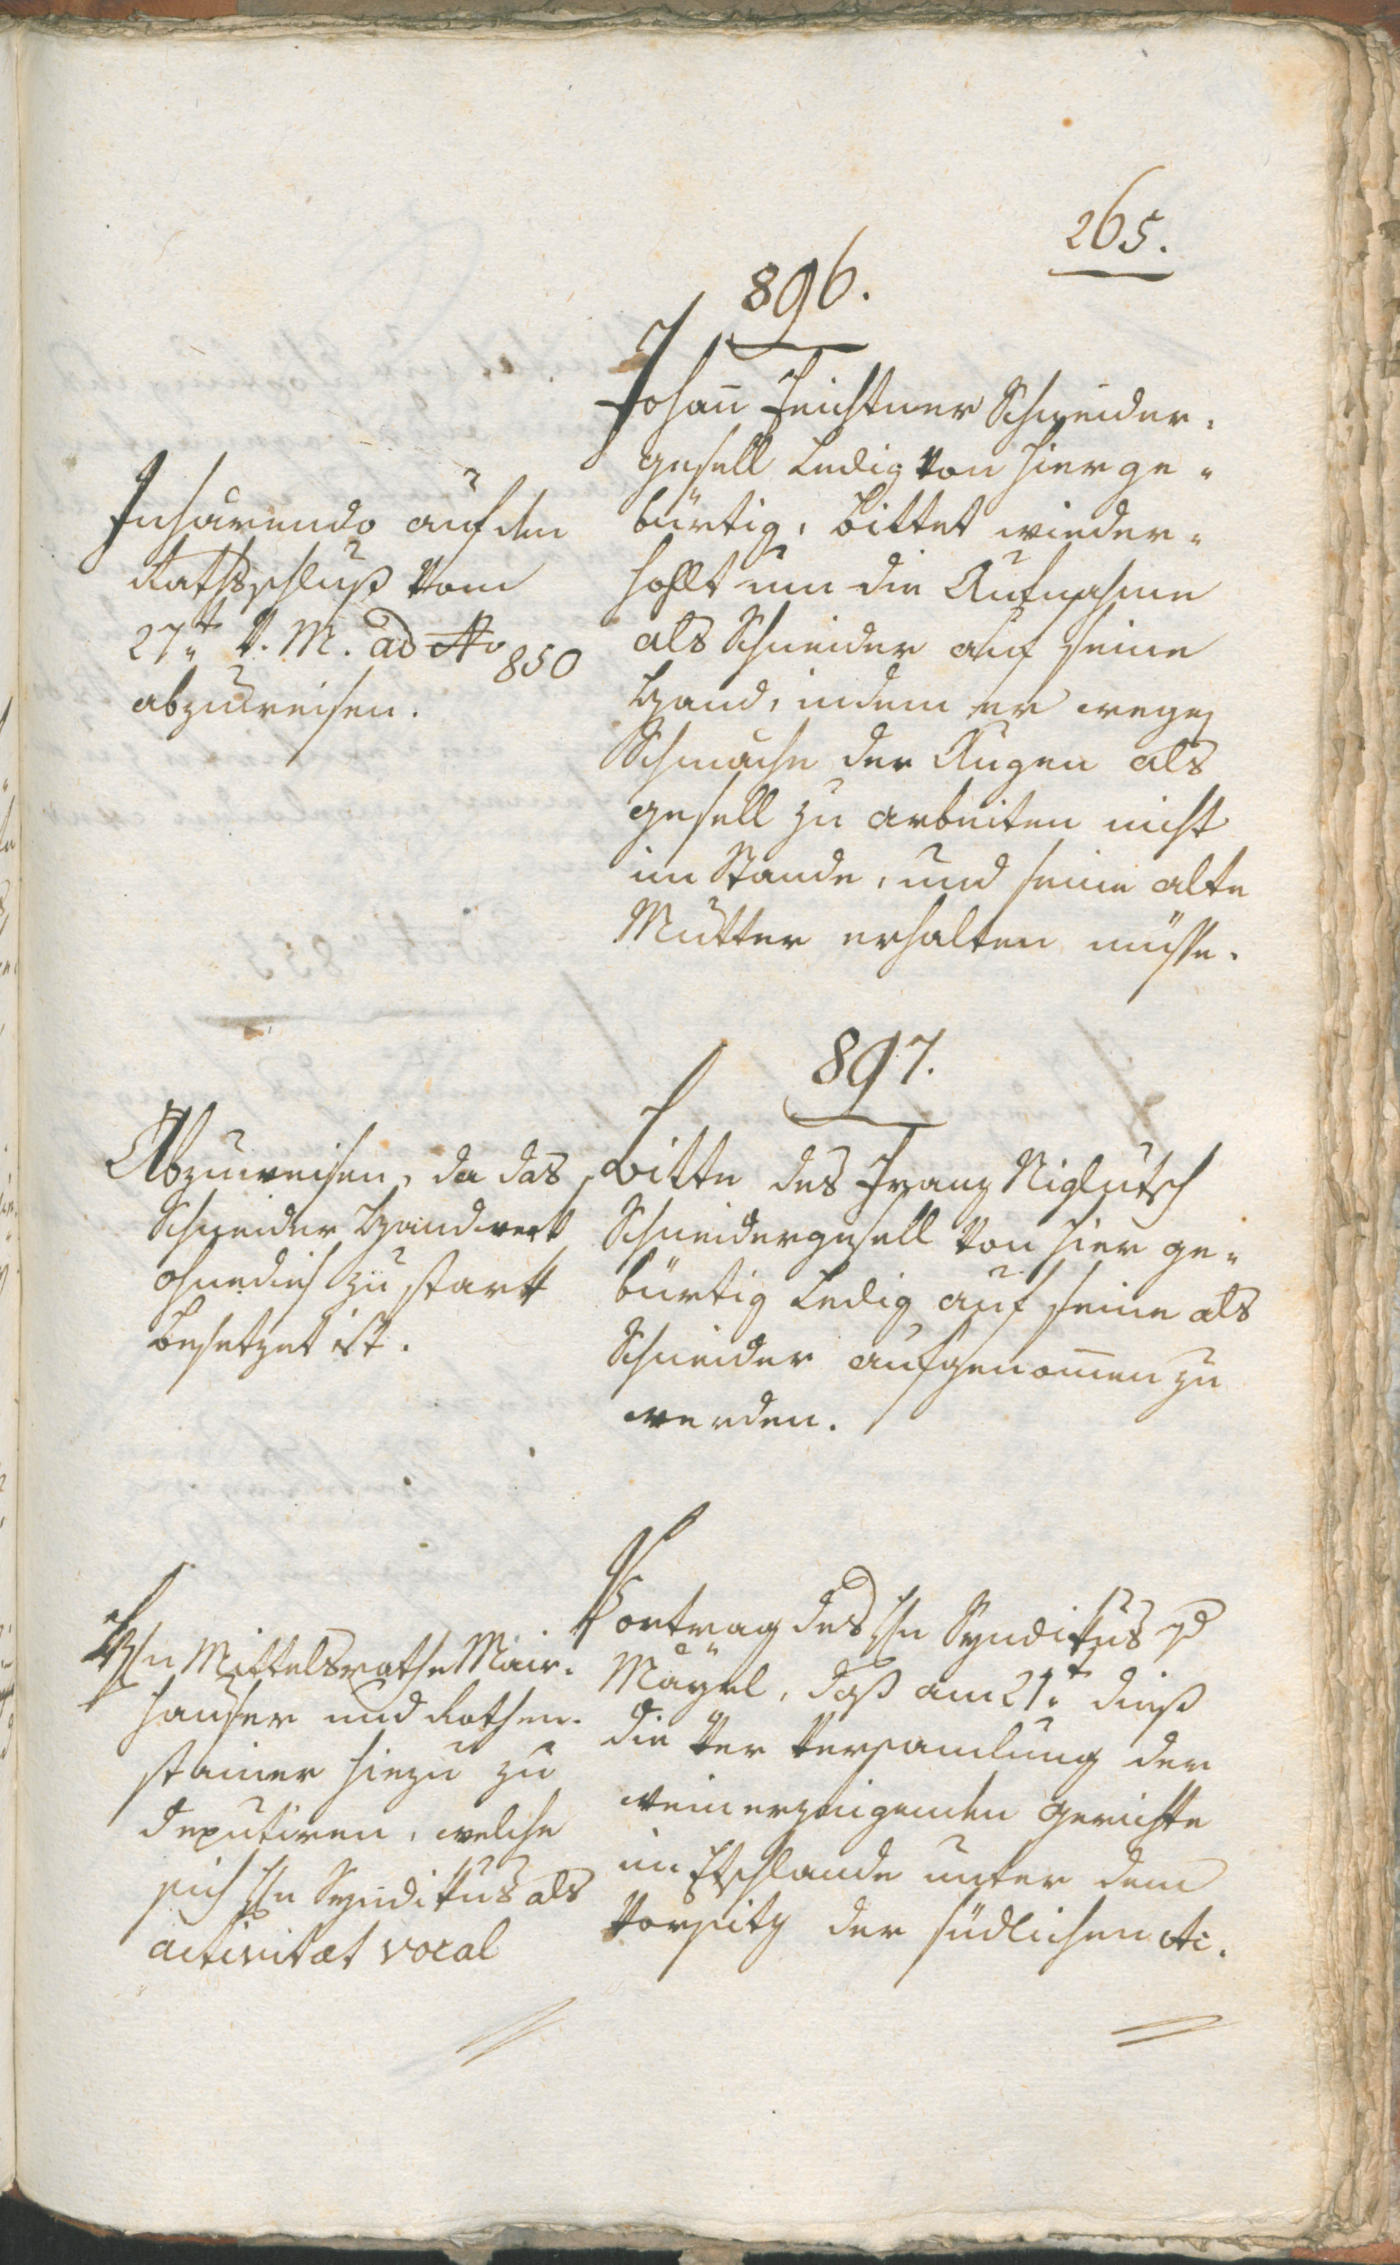 265.
896.
Johan̅ Feichtner Schneider„
gesell ledig von hier ge„
bürtig, bittet wieder„
hollt um die Aufnahme
als Schneider auf seine
Hand, indem er wegen
Schwäche der Augen als
gesell zu arbeiten nicht
im Stande, und seine alte
Mutter erhalten müsse.
Inhærendo auf den
Rathsschluß vom
27t. v. M. ad No 850
abzuweisen.
897.
Bitte des Franz Niglutsch
Schneidergesell von hier ge„
bürtig ledig auf seine als
Schneider aufgenom̅en zu
werden.
Abzuweisen, da das
Schneider Handwerk
ohnedies zu stark
besetzet ist.
Vortrag des Hn Syndikus
Mayrl, daß am 21t. dieß
die Ver Versamlung der
weinerzeigenden Gerichte
im Etschlande unter dem
Vorsitz der südlichen Ac„
Hn Mittelsrathe Mair„
hauser und Rothen„
stainer hiezu zu
deputiren, welche
sich Hn Syndikus als
activitæt vocal